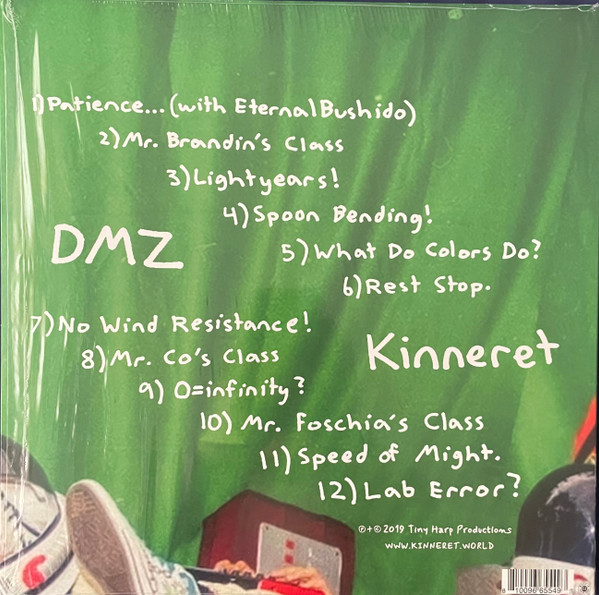 1) Patience... (with EternalBushido)
2) Mr. Brandin's Class
3) Lightyears!
4) Spoon Bending!
DMZ
5) What Do Colors Do?
6) Rest Stop.
7) No Wind Resistance!
Kinneret
8) Mr. Co's Class
9) 0=infinity?
10) Mr. Foschia's Class
11) Speed of Might.
12) Lab Error?
℗+© 2019 Tiny Harp Productions
WWW.KINNERET.WORLD
8 10096 65549